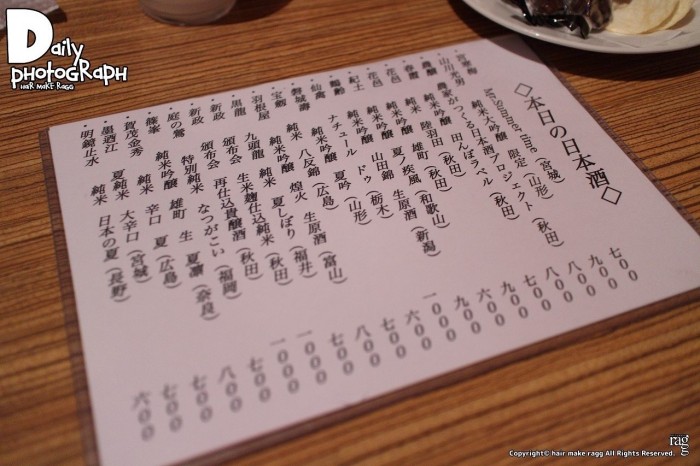 Daily
PHOTOGRAPH
HAIR MAKE RAGG
◇本日の日本酒◇
宮寒梅 Mr.summer time (宮城) 七〇〇
山川光男 純米大吟醸 限定 (山形) 八〇〇
農醸 農家がつくる日本酒プロジェクト (秋田) 八〇〇
春霞 純米吟醸 田んぼラベル (秋田) 九〇〇
花邑 純米吟醸 陸羽田 (秋田) 七〇〇
花邑 純米吟醸 雄町 (秋田) 九〇〇
紀土 純米吟醸 夏ノ疾風 (和歌山) 六〇〇
鶴齢 純米吟醸 山田錦 生原酒 (新潟) 九〇〇
仙禽 ナチュール ドゥ (栃木) 一〇〇〇
磐城壽 純米 夏吟 (山形) 七〇〇
宝剣 純米吟醸 八反錦 (広島) 七〇〇
羽根屋 純米吟醸 煌火 生原酒 (富山) 八〇〇
黒龍 九頭龍 純米 夏しぼり (福井) 七〇〇
新政 頒布会 生米麹仕込純米 (秋田) 一〇〇〇
新政 頒布会 再仕込貴醸酒 (秋田) 一〇〇〇
庭の鶯 特別純米 なつがこい (福岡) 七〇〇
篠峯 純米吟醸 雄町 生 夏凛 (奈良) 八〇〇
賀茂金秀 純米 辛口 夏 (広島) 七〇〇
墨廼江 夏純米 大辛口 (宮城) 七〇〇
明鏡止水 純米 日本の夏 (長野) 六〇〇
rag
Copyright© hair make ragg All Rights Reserved.